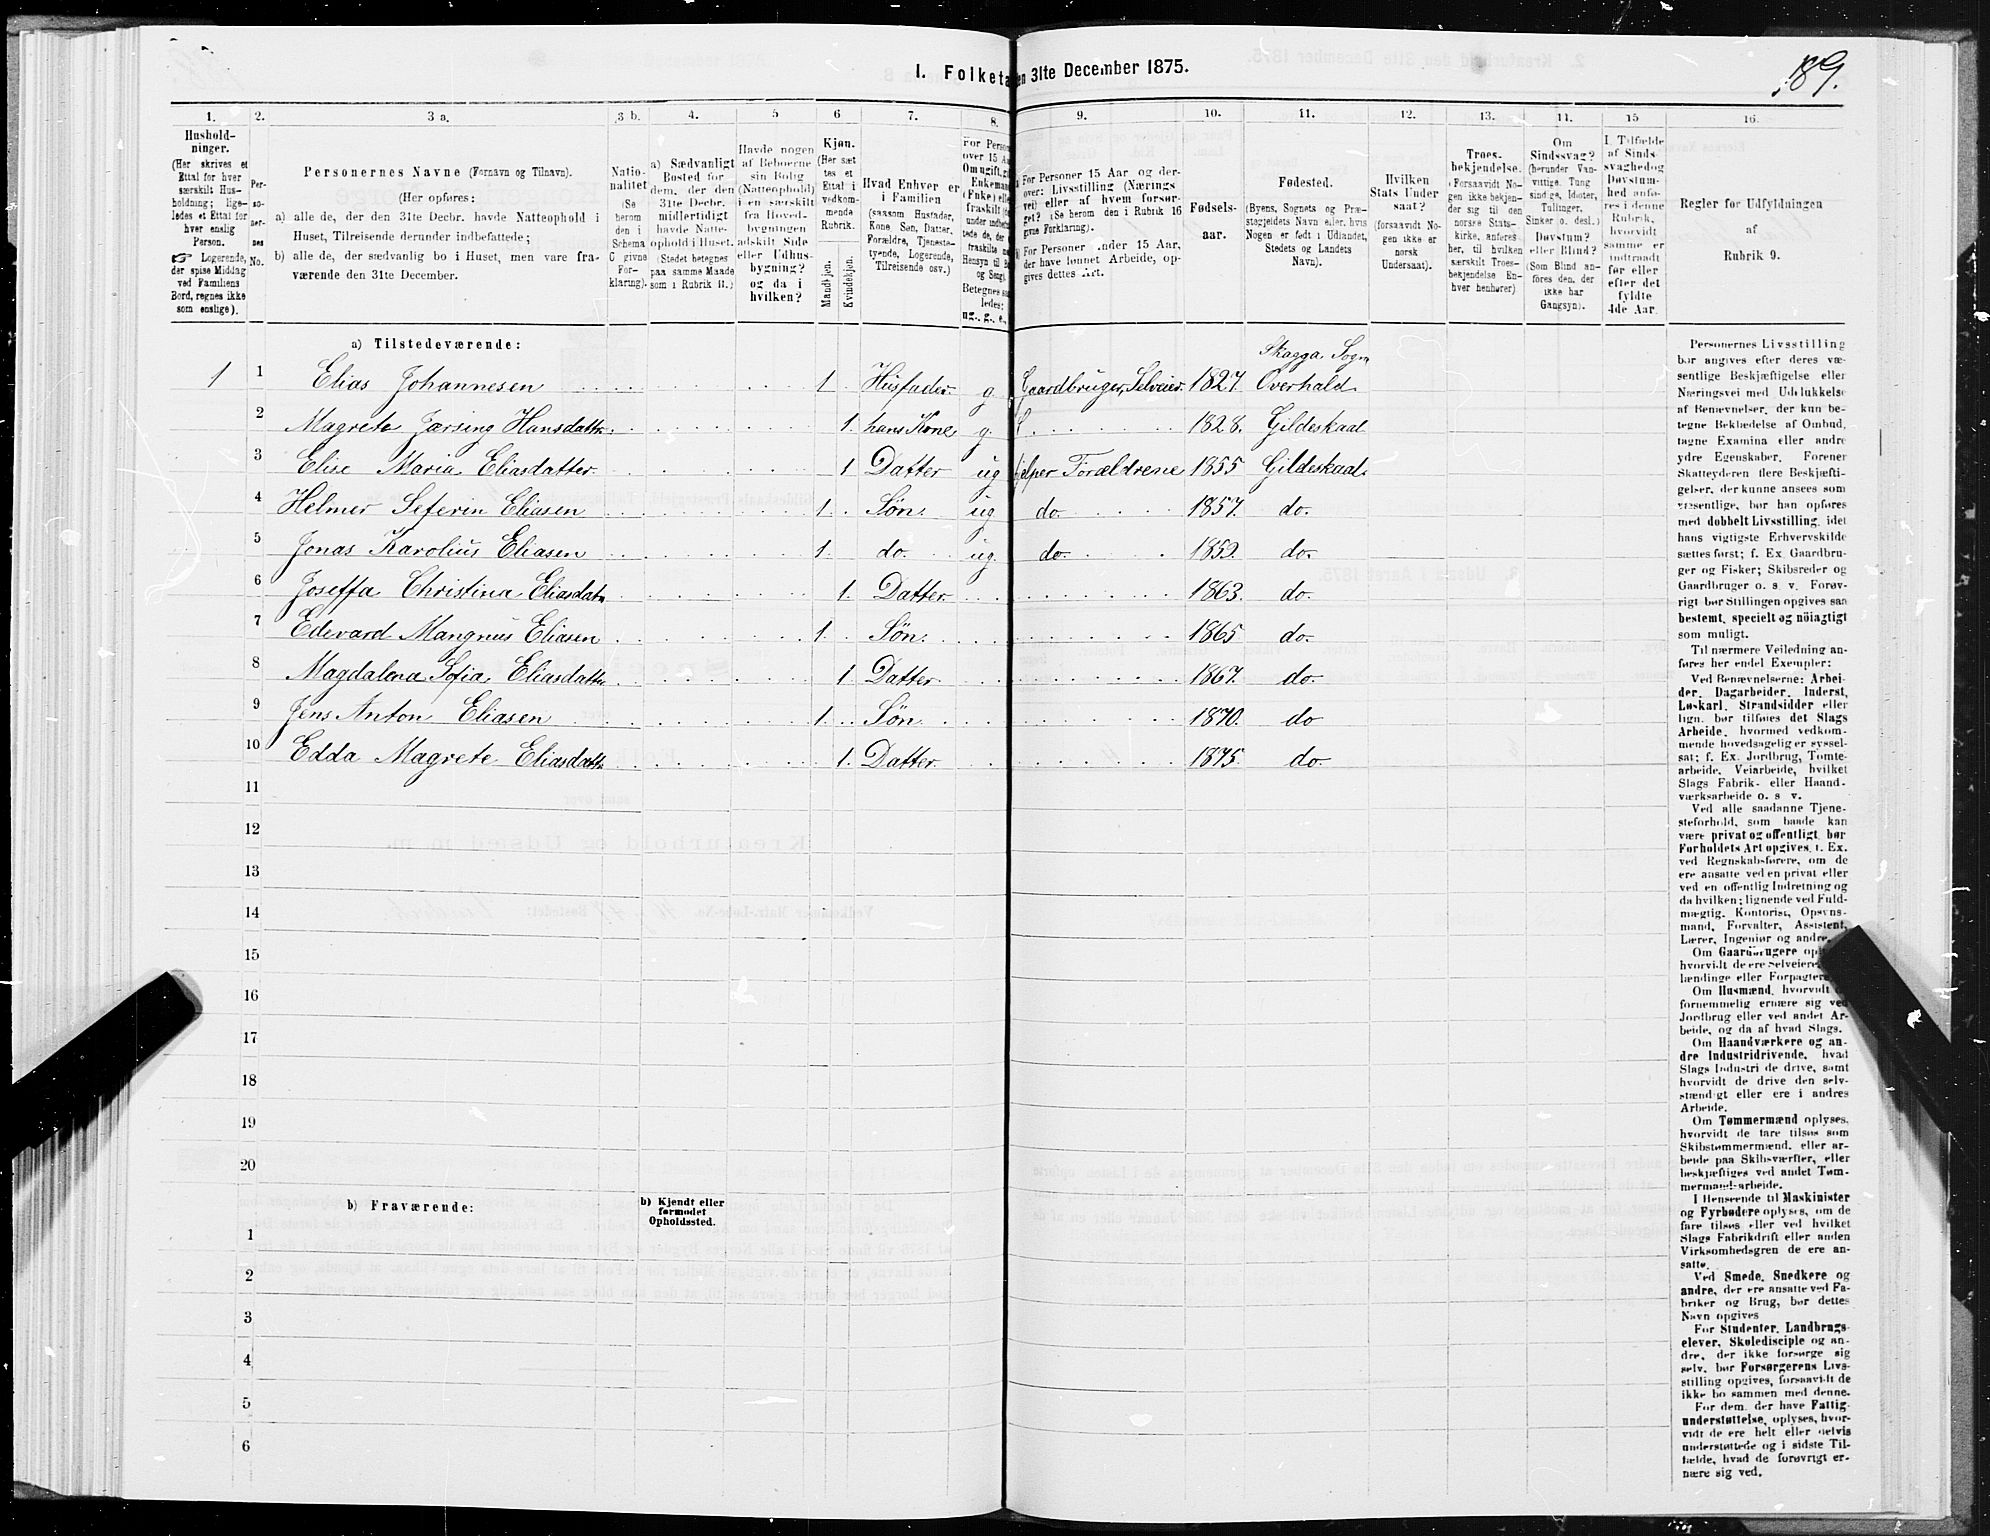 189.
I. Folketa en 31te December 1875.
1. 2. 3 a. 3 b. 4. 5 6 7. 8. 9. 10. 11. 12. 13. 14. 15 16.
Hushold-
ninger.
(Her skrives et
Ettal for hver
særskilt Hus-
holdning; lige-
ledes et Ettal for
hver enslig
Person.
☞ Logerende,
der spise Middag
ved Familiens
Bord, regnes ikke
som enslige).
Per-
so-
ner-
nes
No.
Personernes Navne (Fornavn og Tilnavn).
(Her opføres:
a) alle de, der den 31te Decbr. havde Natteophold i
Huset, Tilreisende derunder indbefattede;
b) alle de, der sædvanlig bo i Huset, men vare fra-
værende den 31te December.
Natio-
nalitet
(Se
herom
den i
Schema
C givne
For-
klaring).
a) Sædvanligt
Bosted for
dem, der den
31te Decbr.
midlertidigt
havde Natte-
ophold i Huset.
(Stedet betegnes
paa samme Maade
som i Rubrik 11.)
Havde nogen
af Beboerne
sin Bolig
(Natteophold)
i en særskilt
fra Hoved-
bygningen
adskilt Side
eller Udhus-
bygning?
og da i
hvilken?
Kjøn.
(Her sæt
tes et
Ettal i
vedkom-
mende
Rubrik.
Mandkjøn.
Kvindekjøn.
Hvad Enhver er
i Familien
(saasom Husfader,
Kone, Søn, Datter,
Forældre, Tjeneste-
tyende, Logerende,
Tilreisende osv.)
For Person
over 15 Aa
Om ugift, gi
Enkeman
(Enke) elle
fraskilt
ug., g., e.,
For Personer 15 Aar og der-
over: Livsstilling (Nærings
vei) eller af hvem forsør-
get? (Se herom den i Rubrik 16
givne Forklaring).
For Personer under 15 Aar,
der have lønnet Arbeide, op-
gives dettes Art.
Fødsels-
aar.
Fødested.
(Byens, Sognets og Præ-
stegjeldets Navn eller, hvis
Nogen er født i Udlandet,
Stedets og Landets
Navn).
Hvilken
Stats Under
saat?
(forsaavidt No-
gen ikke er
norsk
Undersaat).
Troes-
bekjendelse.
(Forsaavidt No-
gen ikke bekjen-
der sig til den
norske Stats-
kirke, anføres
her, til hvilken
særskilt Troes-
bekjendelse En-
hver henhører)
Om
Sindssvag?
(herunder Van-
vittige, Tung
sindige, Idioter,
Tullinger,
Sinker o. desl.)
Døvstum?
eller Blind?
(Som Blind an-
føres den, der
ikke har
Gangsyn).
I Tilfælde
af Sinds-
svaghed og
Døvstum-
hed anfø-
res i denne
Rubrik,
hvorvidt
samme er
indtraadt
før eller
efter det
fyldte
4de Aar.
Regler for Udfyldningen
af
Rubrik 9.
a) Tilstedeværende:
Skagga Sogn
1 1 Elias Johannesen 1 Husfader g Gaardbruger, Selveier 1827. Overhald
2 Magrete Jærsing Hansdattr. 1. hans Kone g. 1828. Gildeskaal
3 Elise Maria Eliasdatter. 1 Datter ug jelper Forældrene 1855 Gildeskaal.
4 Helmer Seferin Eliasen 1. Søn. ug do. 1857. do.
5 Jonas Karolius Eliasen 1. do. ug. do. 1859. do.
6 Joseffa Christina Eliasdat. 1. Datter. 1863. do.
7 Edevard Mangnus Eliasen 1. Søn. 1865 do.
8 Magdalena Sofia Eliasdattr 1 Datter. 1867. do.
9 Jens Anton Eliasen 1. Søn. 1870. do
10 Edda Magrete Eliasdattr. 1. Datter. 1875. do.
11
12
13
14
15
16
17
18
19
20
b) Fraværende:
b) Kjendt eller
formodet
Opholdssted.
1
2
3
4
5
6
Personernes Livsstilling
bør angives efter deres væ-
sentlige Beskjæftigelse eller
Næringsvei med Udelukkelse
af Benævnelser, der kun be-
tegne Beklædelse af Ombud,
tagne Examina eller andre
ydre Egenskaber. Forener
Skatteyderen flere Beskjæfti-
gelser, der kunne ansees som
væsentlige, bør han opføres
med dobbelt Livsstilling, idet
hans vigtigste Erhvervskilde
sættes først; f. Ex. Gaardbru-
ger og Fisker; Skibsreder og
Gaardbruger o. s. v. Forøv-
rigt bør Stillingen opgives saa
bestemt, specielt og nöiagtigt
som muligt.
Til nærmere Veiledning an-
føres her endel Exempler:
Ved Benævnelserne: Arbei-
der, Dagarbeider, Inderst,
Løskarl, Strandsidder eller
lign. bør tilføies det Slags
Arbeide, hvormed vedkom-
mende hovedsagelig er syssel-
sat; f. Ex. Jordbrug, Tomte-
arbeide, Veiarbeide, hvilket
Slags Fabrik- eller Haand-
værksarbeide o. s. v.
Ved alle saadanne Tjene-
steforhold, som baade kan
være privat og offentligt, bør
Forholdets Art opgives, f. Ex.
ved Regnskabsførere, om de
ere ansatte ved en privat eller
ved en offentlig Indretning og
da hvilken; lignende ved Fuld-
mægtig, Kontorist, Opsyns-
mand, Forvalter, Assistent,
Lærer, Ingeniør og andre.
Om Gaardbrugere
hvorvidt de ere Selveiere
lændinge eller Forpagtere
Om Husmænd, hvorvidt
fornemmelig ernære sig ved
Jordbrug eller ved andet Ar-
beide, og da af hvad Slags.
Om Haandværkere og an-
dre Industridrivende, hvad
Slags Industri de drive, samt
hvorvidt de drive den selv-
stændigt eller ere i andres
Arbeide.
Om Tømmermænd oplyses,
hvorvidt de fare tilsøs som
Skibstømmermænd, eller ar-
beide paa Skibsværfter, eller
beskjæftiges ved andet Tøm-
mermandsarbeide.
I Henseende til Maskinister
og Fyrbødere oplyses, om de
fare tilsøs eller ved hvilket
Slags Fabrikdrift eller anden
Virksomhedsgren de ere an-
satte.
Ved Smede, Snedkere og
andre, der ere ansatte ved Fa-
briker og Brug, bør dettes
Navn opgives
For Studenter, Landbrugs-
elever, Skoledisciple og an-
dre, der ikke forsørge sig
selv, bør Forsørgerens Livs-
stilling opgives, forsaavidt de
ikke bo sammen med denne.
For dem, der have Fattig-
understøttelse, oplyses, hvor-
vidt de ere helt eller delvis
understøttede og i sidste Til-
fælde, hvad de forøvrigt er-
nære sig ved.